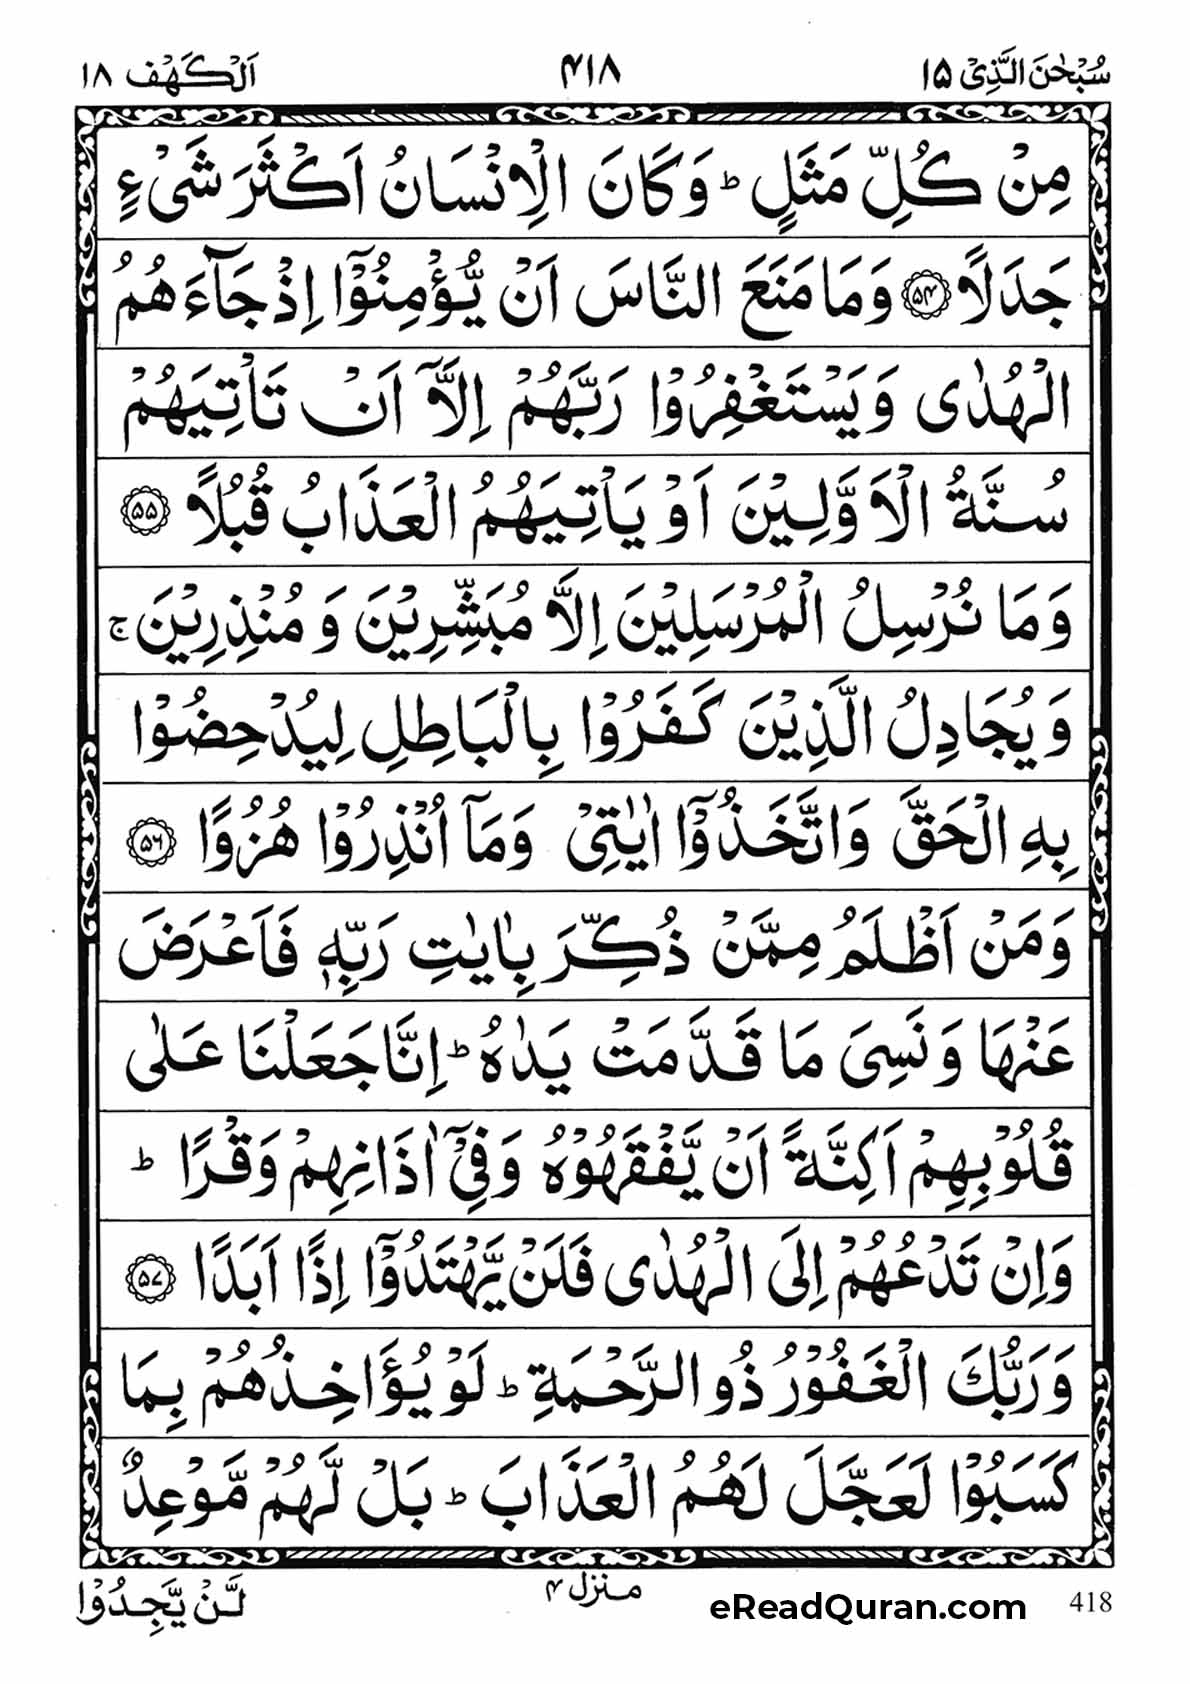 سُبْحٰنَ الَّذِیْۤ ١٥ ٤١٨ اَلْكَهْف ١٨
مِنْ كُلِّ مَثَلٍ ؕ وَكَانَ الْاِنْسَانُ اَكْثَرَ شَیْءٍ
جَدَلًا ﴿۵۴﴾ وَمَا مَنَعَ النَّاسَ اَنْ یُّؤْمِنُوْۤا اِذْ جَآءَهُمُ
الْهُدٰی وَیَسْتَغْفِرُوْا رَبَّهُمْ اِلَّاۤ اَنْ تَاْتِیَهُمْ
سُنَّةُ الْاَوَّلِیْنَ اَوْ یَاْتِیَهُمُ الْعَذَابُ قُبُلًا ﴿۵۵﴾
وَمَا نُرْسِلُ الْمُرْسَلِیْنَ اِلَّا مُبَشِّرِیْنَ وَمُنْذِرِیْنَ ۚ
وَیُجَادِلُ الَّذِیْنَ كَفَرُوْا بِالْبَاطِلِ لِیُدْحِضُوْا
بِهِ الْحَقَّ وَاتَّخَذُوْۤا اٰیٰتِیْ وَمَاۤ اُنْذِرُوْا هُزُوًا ﴿۵۶﴾
وَمَنْ اَظْلَمُ مِمَّنْ ذُكِّرَ بِاٰیٰتِ رَبِّهٖ فَاَعْرَضَ
عَنْهَا وَنَسِیَ مَا قَدَّمَتْ یَدٰهُ ؕ اِنَّا جَعَلْنَا عَلٰی
قُلُوْبِهِمْ اَكِنَّةً اَنْ یَّفْقَهُوْهُ وَفِیْۤ اٰذَانِهِمْ وَقْرًا ؕ
وَاِنْ تَدْعُهُمْ اِلَی الْهُدٰی فَلَنْ یَّهْتَدُوْۤا اِذًا اَبَدًا ﴿۵۷﴾
وَرَبُّكَ الْغَفُوْرُ ذُو الرَّحْمَةِ ؕ لَوْ یُؤَاخِذُهُمْ بِمَا
كَسَبُوْا لَعَجَّلَ لَهُمُ الْعَذَابَ ؕ بَلْ لَّهُمْ مَّوْعِدٌ
لَّنْ یَّجِدُوْا منزل ۴ eReadQuran.com 418